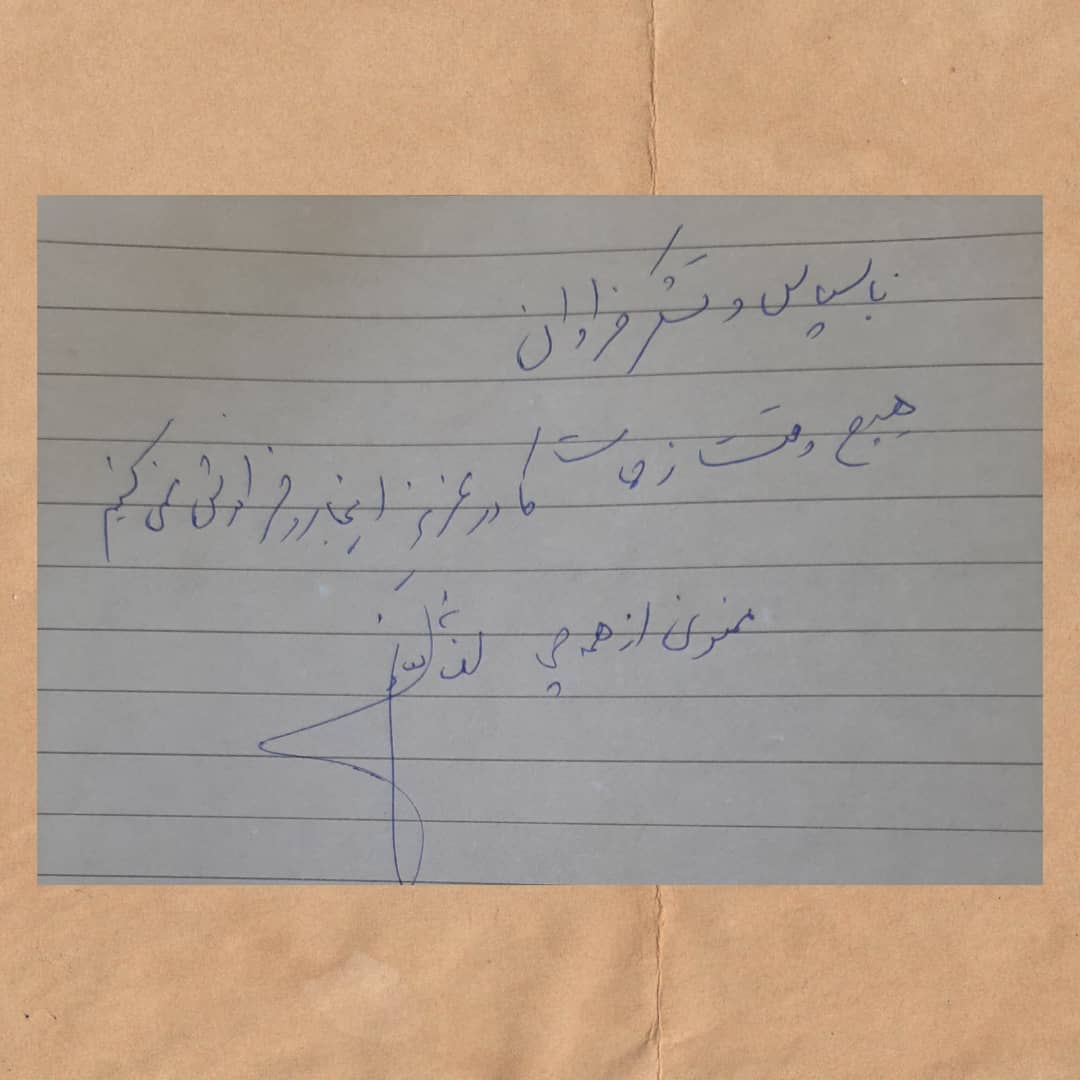 با سپاس و تشکر فراوان
هیچ وقت زحمات کادر عزیز اینجا رو فراموش نمی کنیم
ممنون از همه چی